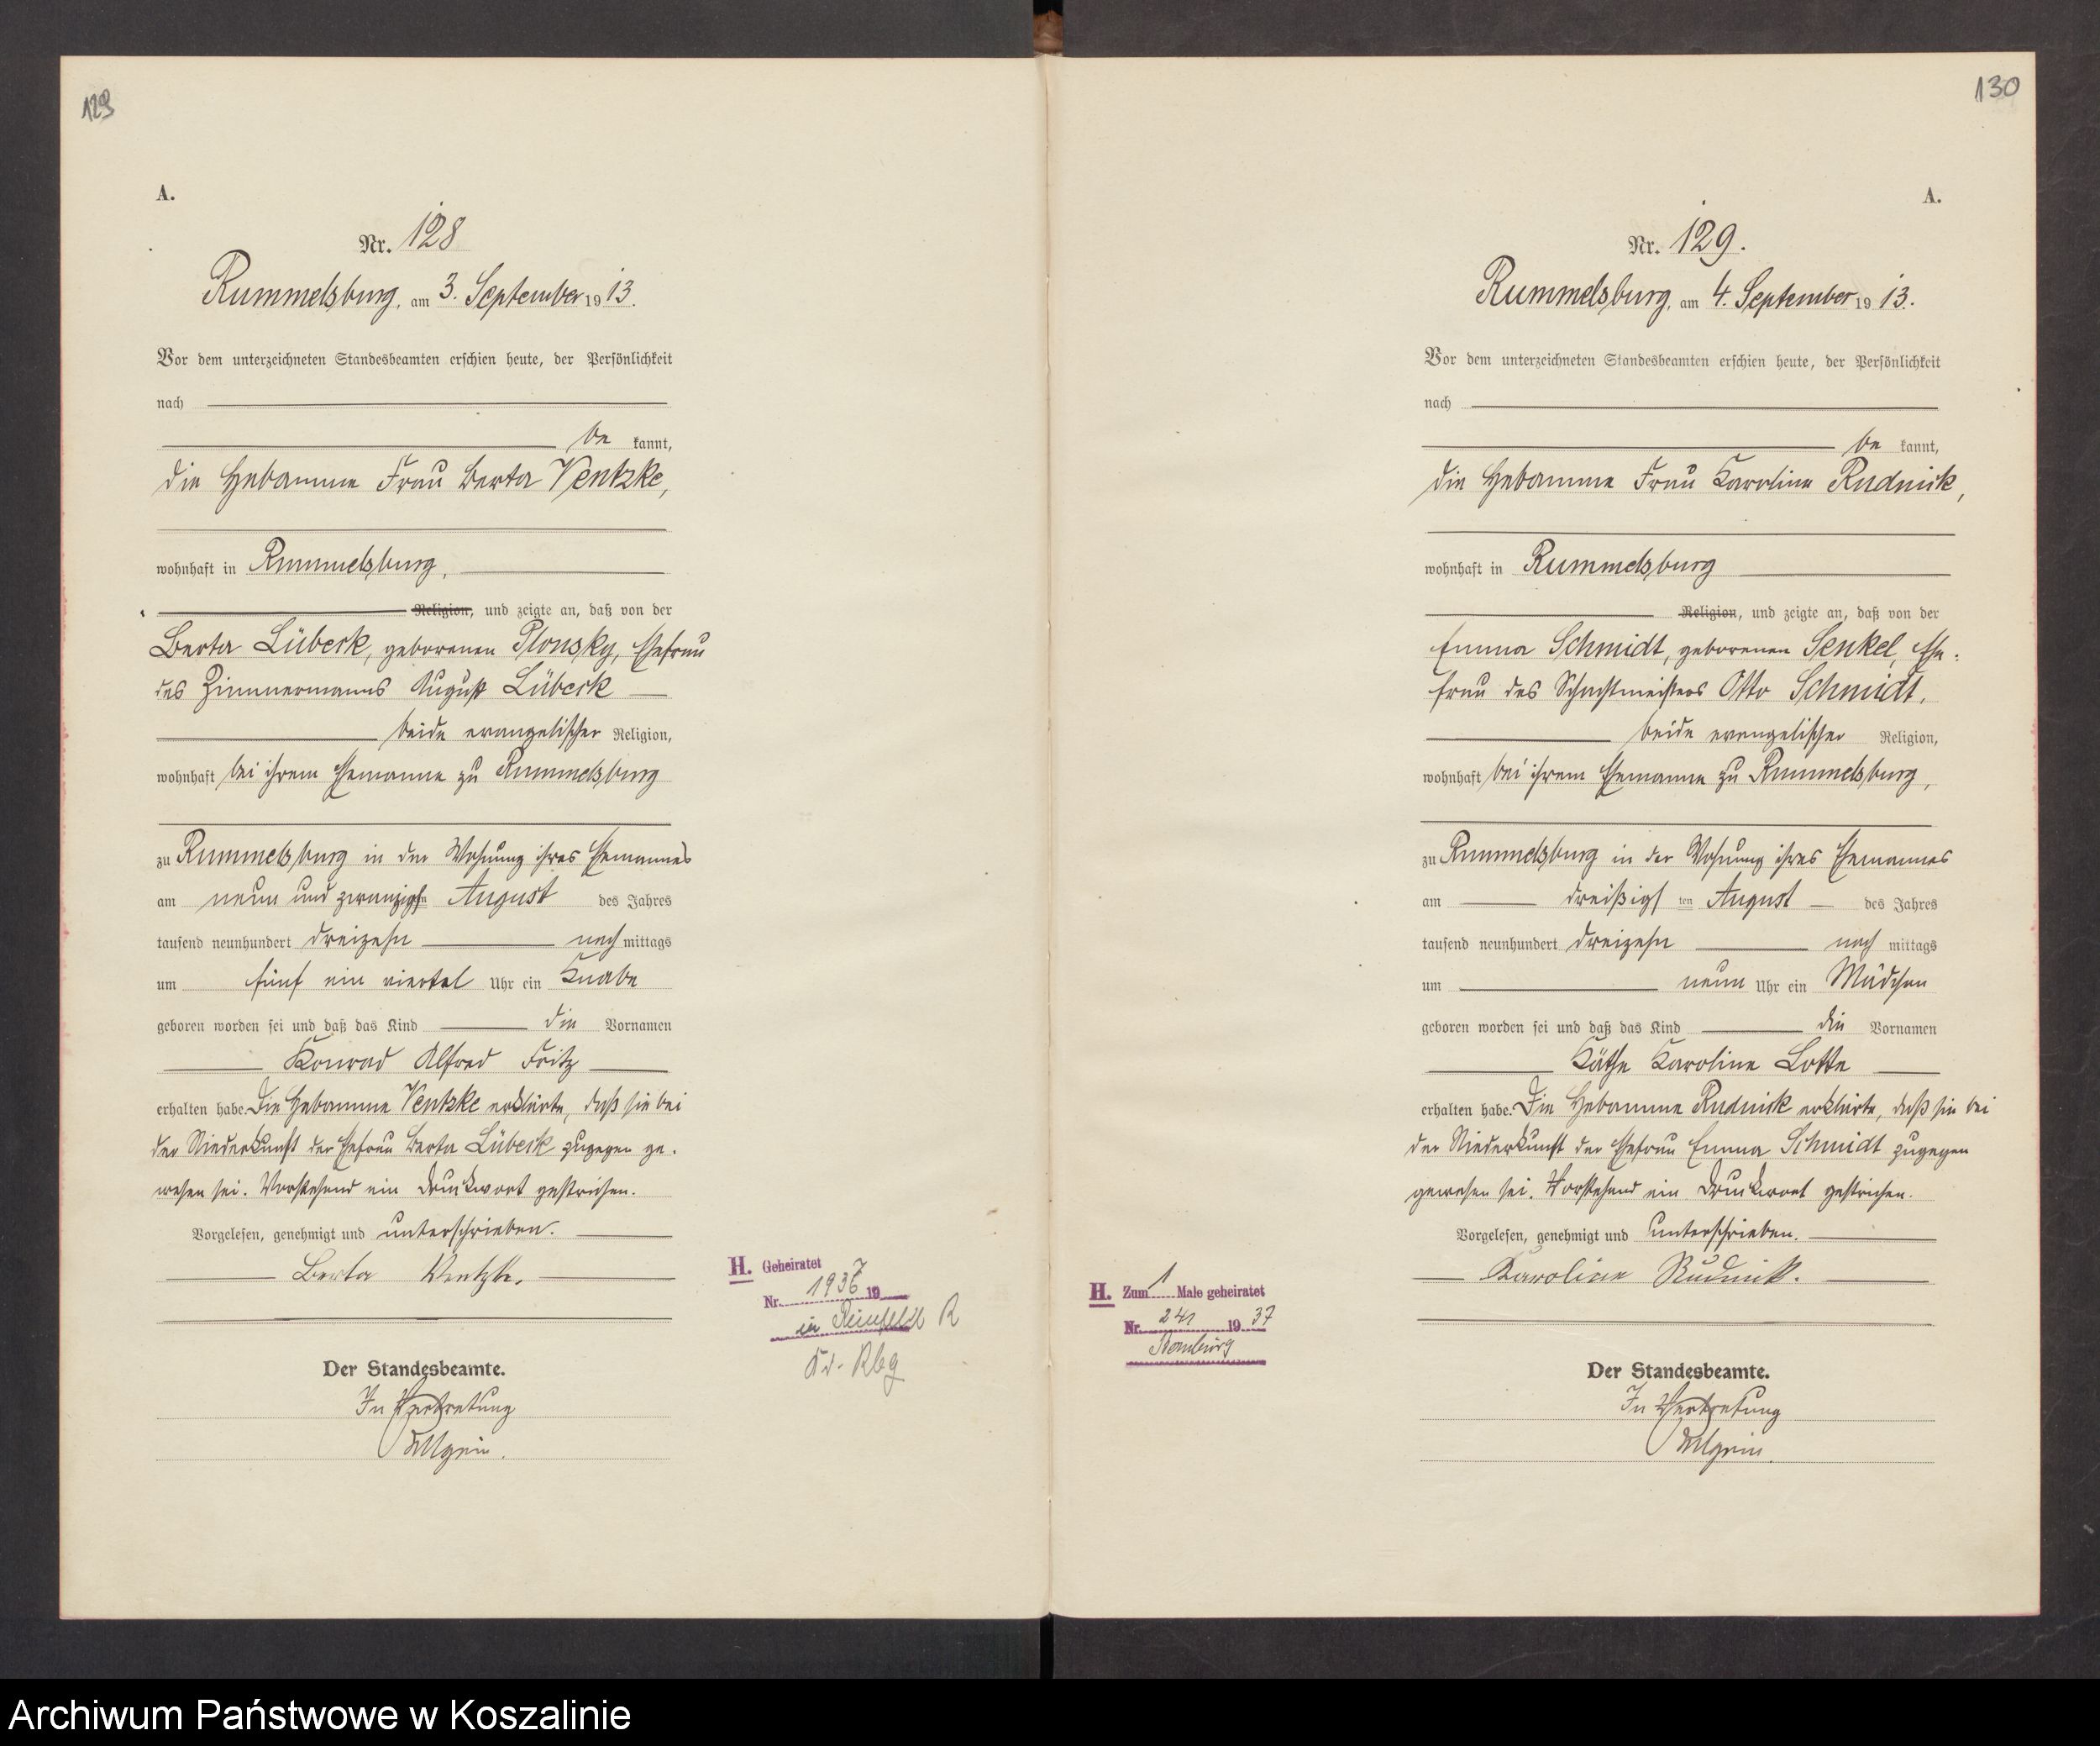 129
A.
Nr. 128
Rummelsburg, am 3. September 1913.
Vor dem unterzeichneten Standesbeamten erschien heute, der Persönlichkeit
nach
be kannt,
die Hebamme Frau Berta Ventzke,
wohnhaft in Rummelsburg,
Religion, und zeigte an, daß von der
Berta Lübeck, geborenen Plonsky, Ehefrau
des Zimmermanns August Lübeck
beide evangelischer Religion,
wohnhaft bei ihrem Ehemanne zu Rummelsburg
zu Rummelsburg in der Wohnung ihres Ehemannes
am neun und zwanzigsten August des Jahres
tausend neunhundert dreizehn nachmittags
um fünf ein viertel Uhr ein Knabe
geboren worden sei und daß das Kind die Vornamen
Konrad Alfred Fritz
erhalten habe. Die Hebamme Ventzke erklärte, daß sie bei
der Niederkunft der Ehefrau Berta Lübeck zugegen ge-
wesen sei. Vorstehend ein Druckwort gestrichen.
Vorgelesen, genehmigt und unterschrieben.
Berta Ventzke.
H. Geheiratet
Nr. 1937 19
in Reinfeld R
Kr. Rbg
Der Standesbeamte.
In Vertretung
130
A.
Nr. 129.
Rummelsburg, am 4. September 1913.
Vor dem unterzeichneten Standesbeamten erschien heute, der Persönlichkeit
nach
be kannt,
die Hebamme Frau Karoline Rudnick,
wohnhaft in Rummelsburg
Religion, und zeigte an, daß von der
Emma Schmidt, geborenen Senkel, Ehe-
frau des Schachtmeisters Otto Schmidt,
beide evangelischer Religion,
wohnhaft bei ihrem Ehemanne zu Rummelsburg,
zu Rummelsburg in der Wohnung ihres Ehemannes
am dreißigsten August des Jahres
tausend neunhundert dreizehn nach mittags
um neun Uhr ein Mädchen
geboren worden sei und daß das Kind die Vornamen
Käthe Karoline Lotte
erhalten habe. Die Hebamme Rudnick erklärte, daß sie bei
der Niederkunft der Ehefrau Emma Schmidt zugegen
gewesen sei. Vorstehend ein Druckwort gestrichen.
Vorgelesen, genehmigt und unterschrieben.
Karoline Rudnick.
H. Zum 1 Male geheiratet
Nr. 241 1937
Hamburg
Der Standesbeamte.
In Vertretung
Archiwum Państwowe w Koszalinie